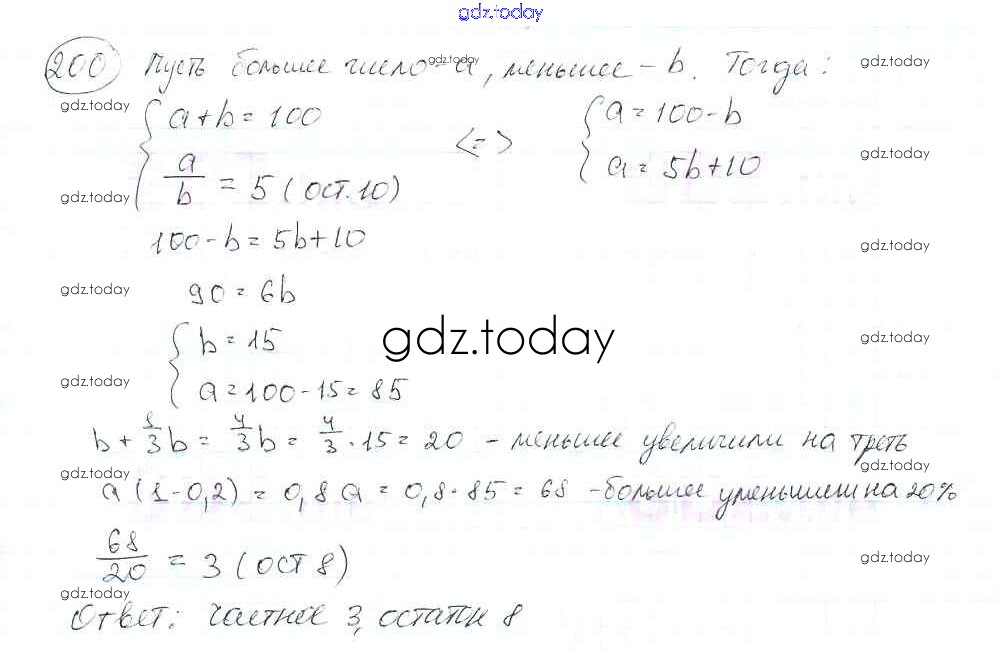 gdz.today
200 Пусть большее число - a, меньшее - b. Тогда:
gdz.today gdz.today
gdz.today
{ a+b = 100 <=> { a = 100-b
a/b = 5 (ост. 10) a = 5b+10
gdz.today
gdz.today
100-b = 5b+10
gdz.today
gdz.today
90 = 6b
gdz.today
{ b = 15
gdz.today
gdz.today
a = 100-15 = 85
b + 1/3 b = 4/3 b = 4/3 · 15 = 20 - меньшее увеличили на треть
gdz.today gdz.today
a (1-0,2) = 0,8 a = 0,8 · 85 = 68 - большее уменьшили на 20%
68/20 = 3 (ост 8)
gdz.today
gdz.today
Ответ: частное 3, остаток 8